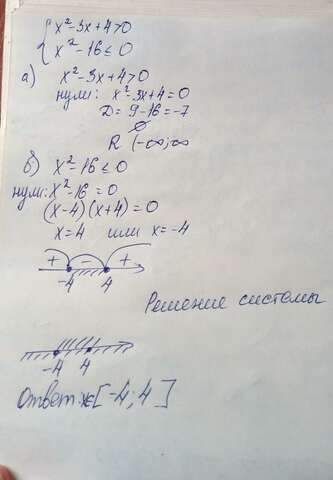 { x²-3x+4>0
x²-16≤0
а) x²-3x+4>0
нули: x²-3x+4=0
D=9-16=-7
∅
R (-∞;∞
б) x²-16≤0
нули: x²-16=0
(x-4)(x+4)=0
x=4 или x=-4
+ - +
-4 4
Решение системы
-4 4
Ответ: x∈[-4; 4]